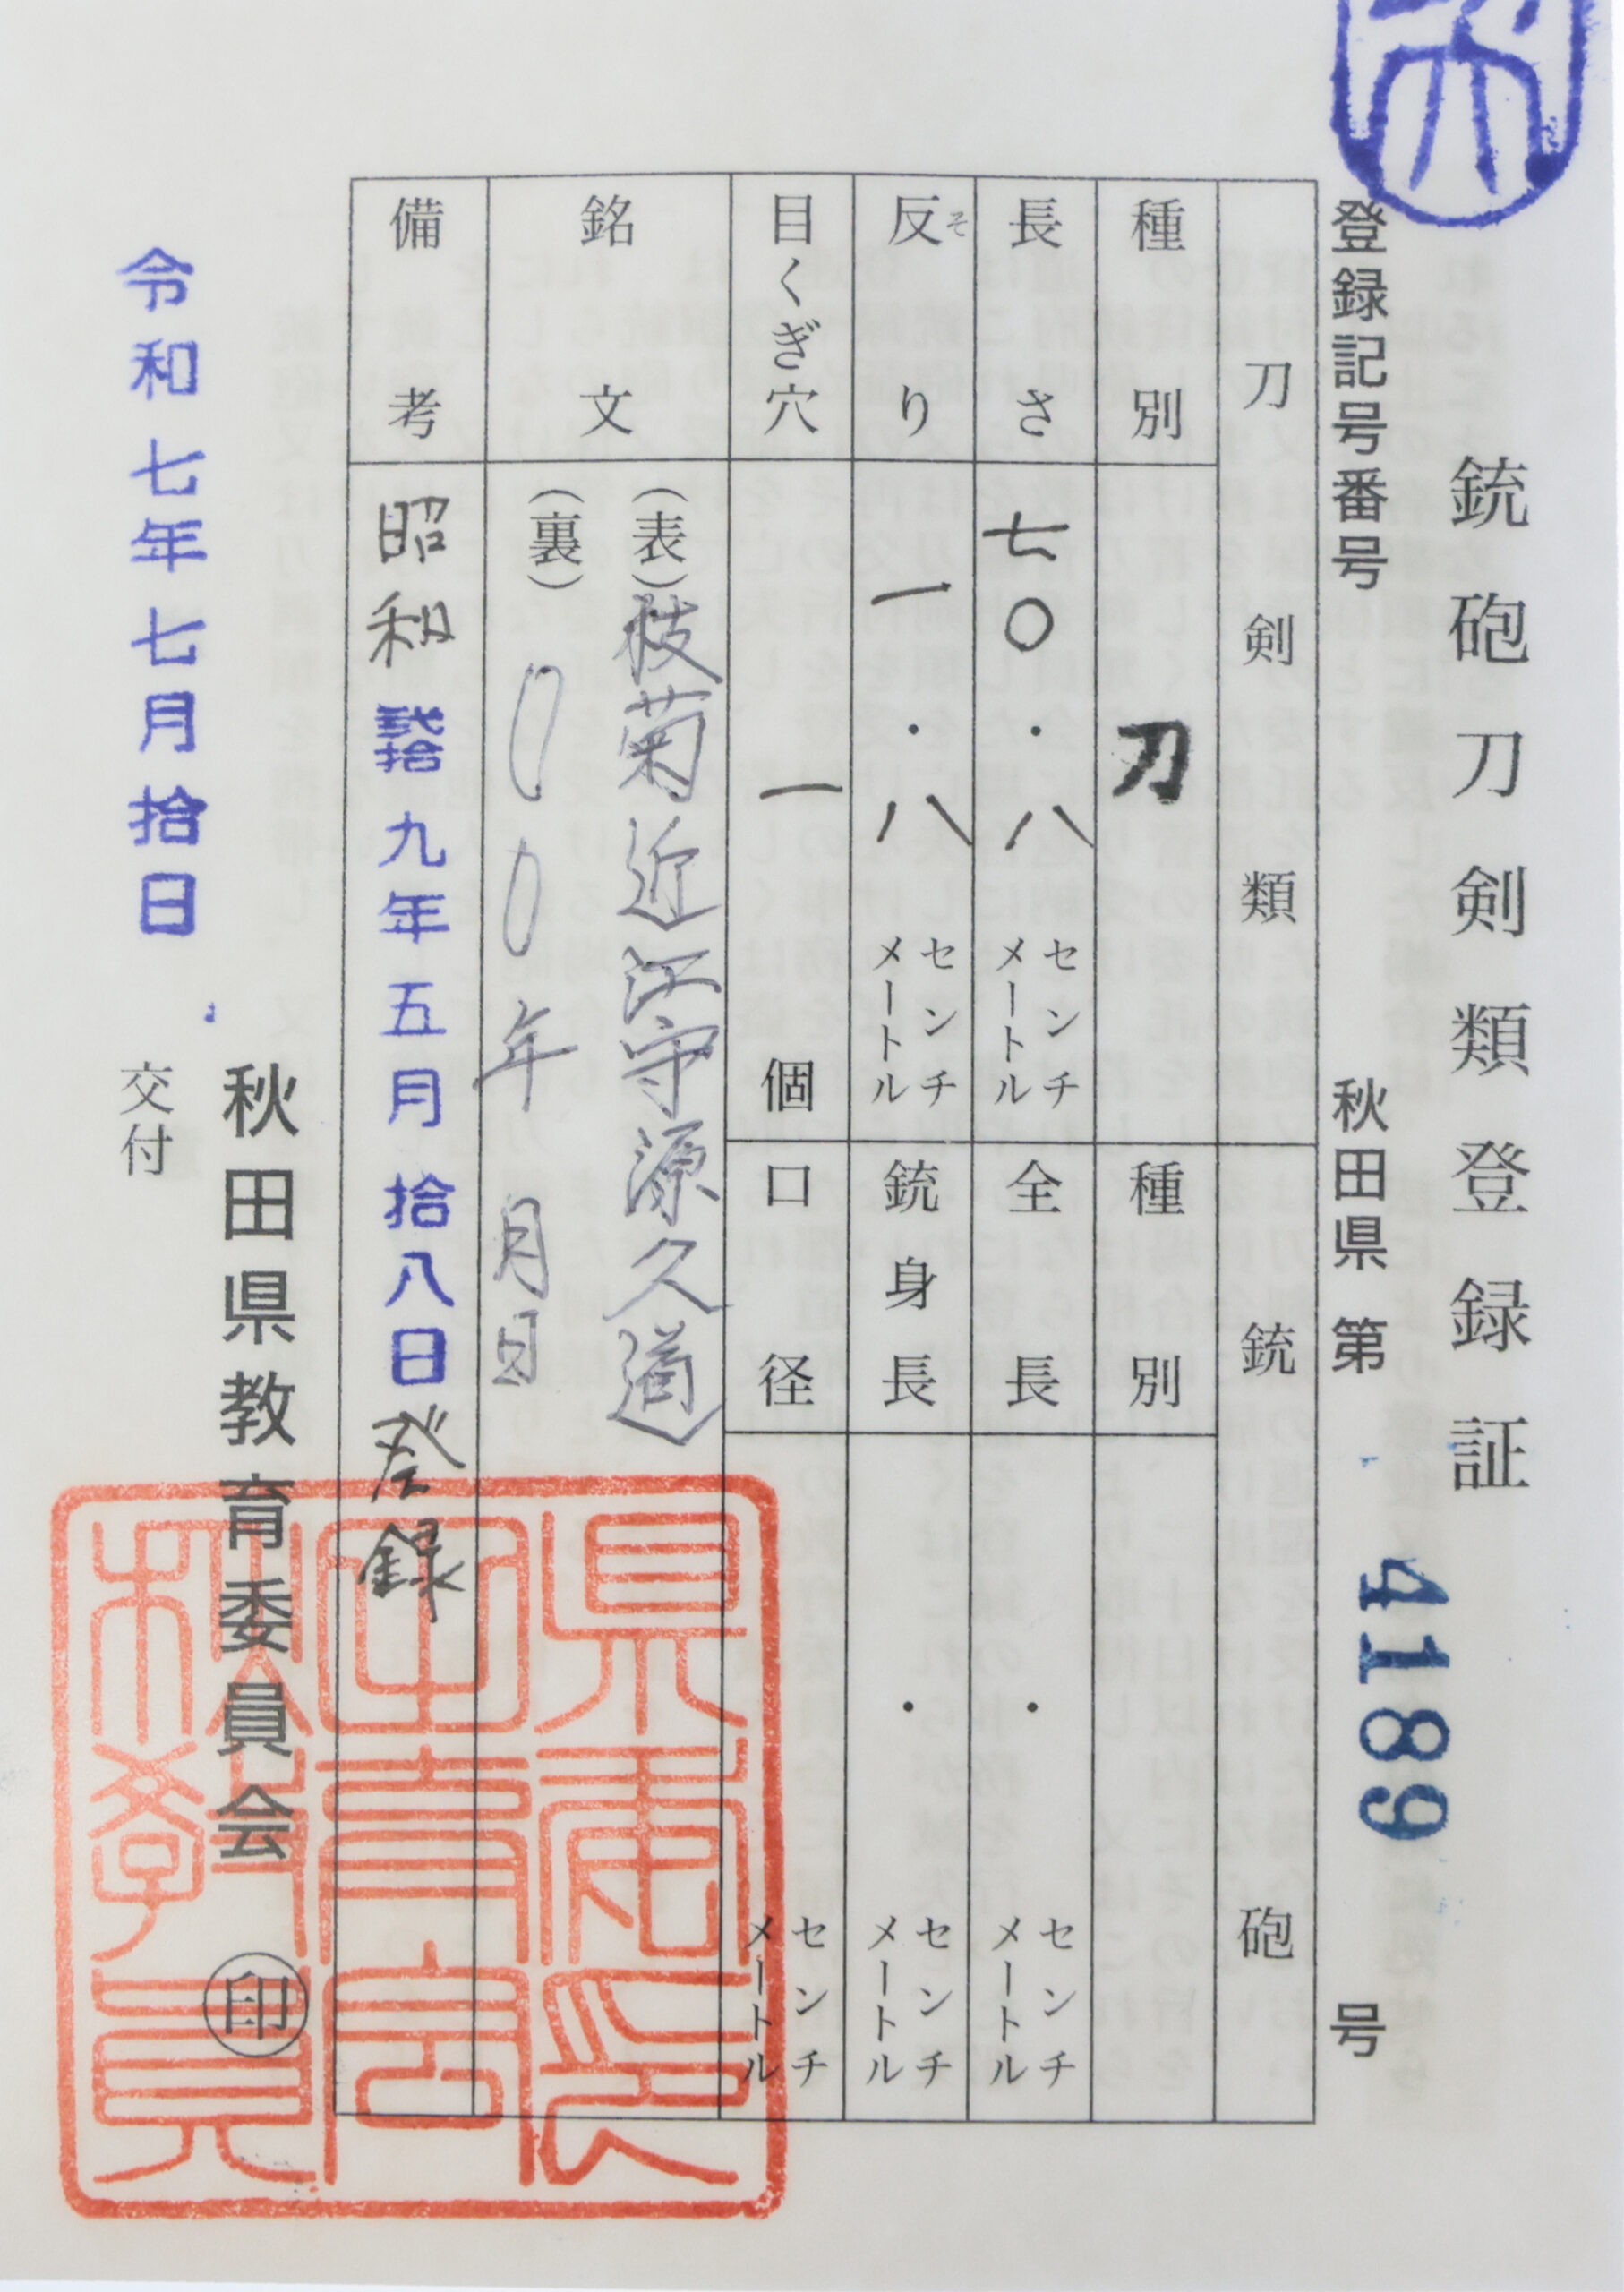 銃砲刀剣類登録証
登録記号番号 秋田県 第 4189 号
刀剣類 銃砲
種別 刀 種別
長さ 七〇・八 センチメートル 全長 ・ センチメートル
反り 一・八 センチメートル 銃身長 ・ センチメートル
そ
目くぎ穴 一 個 口径 センチメートル
銘文 (表)枝菊近江守源久道
(裏)〇〇年 月日
備考 昭和弐拾九年五月拾八日登録
秋田県教育委員会 印
令和七年七月拾日 交付